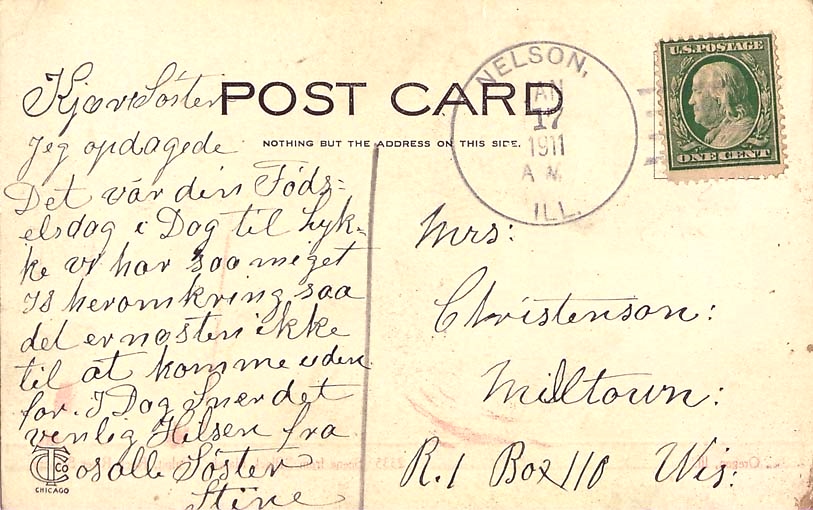 Kjær Söster
POST CARD
NOTHING BUT THE ADDRESS ON THIS SIDE.
NELSON,
JAN
17
1911
A M.
ILL.
U.S. POSTAGE
ONE CENT
Jeg opdagede
Det var din Föds=
elsdag i Dag til Lyk=
ke vi har saa meget
Is heromkring saa
det er nosten ikke
til at komme uden
for. I Dag Sner det
venlig Hilsen fra
os alle Söster
Stine
Mrs:
Christenson:
Milltown:
R.1 Box 110 Wis:
CO
CHICAGO
2335
Oregon, Ill.